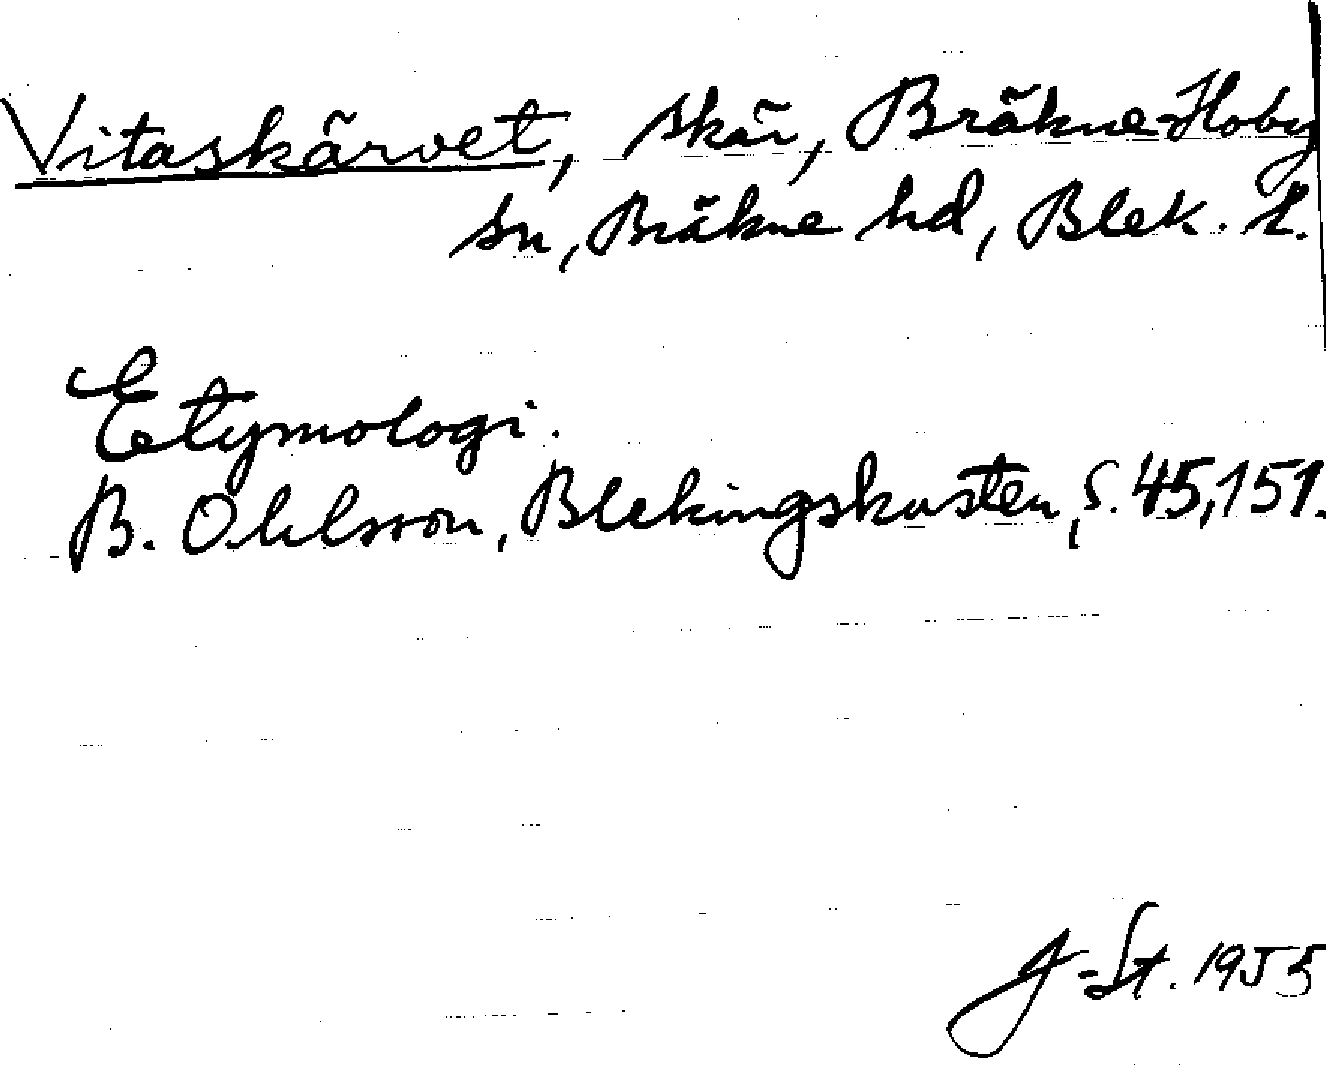 Vitaskärvet, skär, Bräkne-Hoby
sn, Bräkne hd, Blek. l.
Etymologi.
B. Ohlsson, Blekingskusten, s. 45, 151.
-St. 1953